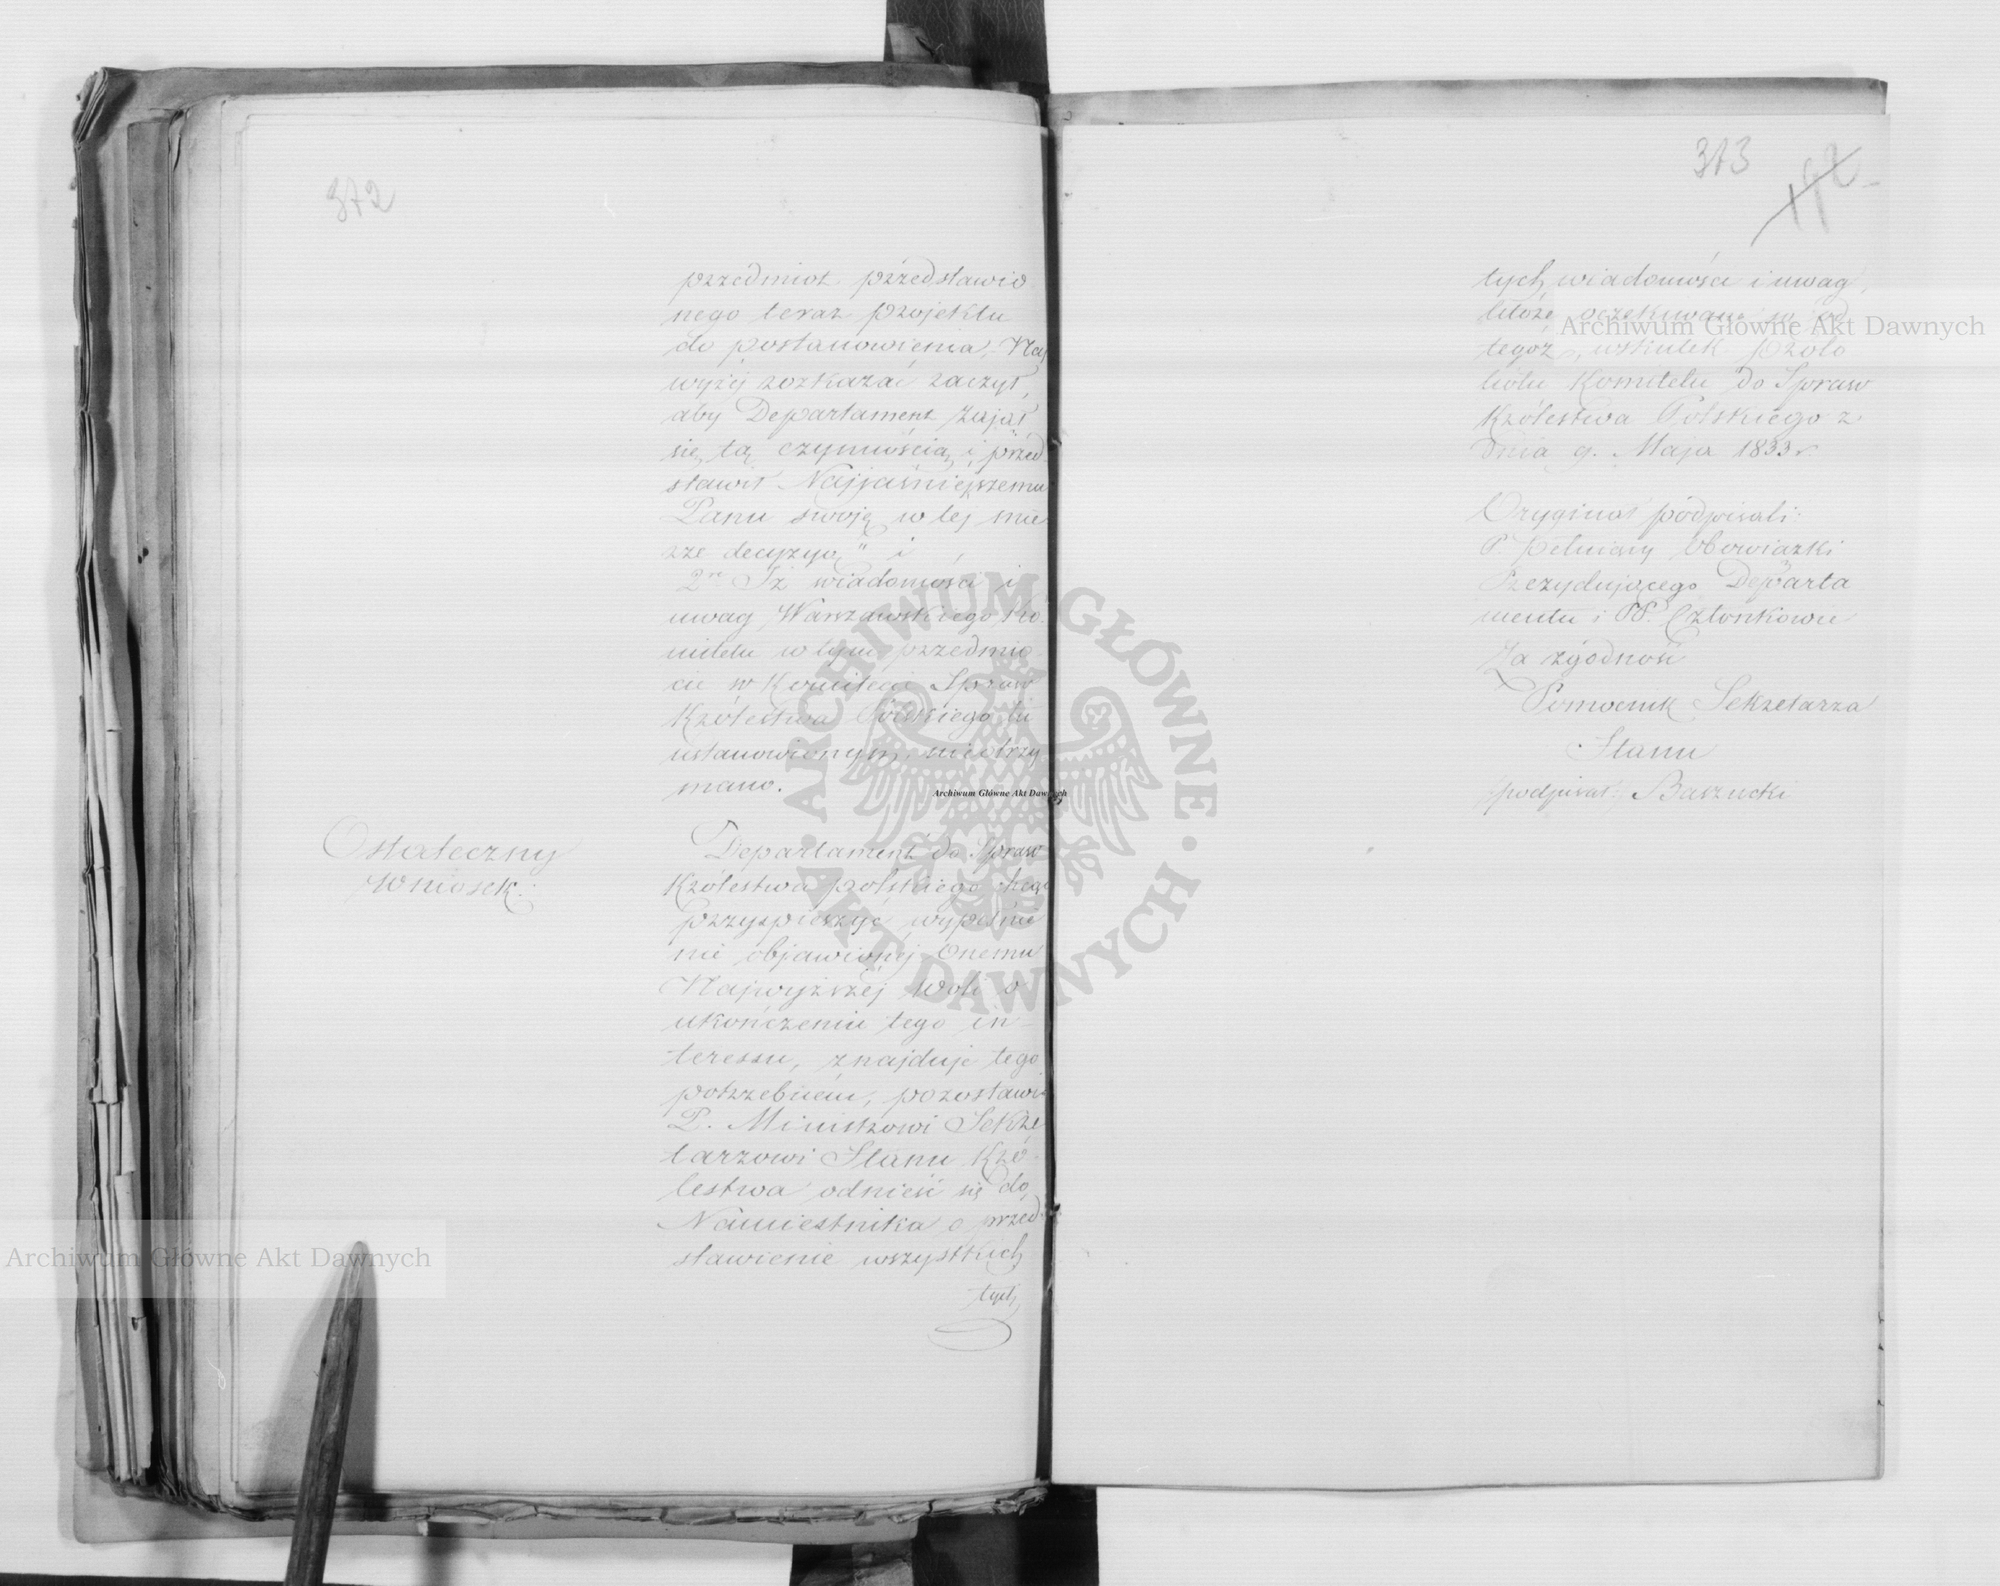 372
przedmiot przedstawio
nego teraz projektu
do postanowienia, Naj
wyżej rozkazać raczył,
aby Departament zajął
się tą czynnością i przed
stawił Najjaśniejszemu
Panu swoję w tej mie
rze decyzyą" i
2re Iż wiadomości i
uwag Warszawskiego Ko-
mitetu w tym przedmio
cie w Komitecie Spraw
Królestwa Polskiego tu
ustanowionym, nieotrzy
mano.
Ostateczny
Wniosek:
Departament do Spraw
Królestwa polskiego chcąc
przyspieszyć wypełnie
nie objawionej Onemu
Najwyższej Woli o
ukończeniu tego in-
teressu, znajduje tego
potrzebném, pozostawić
P. Ministrowi Sekre
tarzowi Stanu Kró-
lestwa odnieść się do
Namiestnika o przed-
stawienie wszystkich
tych
373
192
tych wiadomości i uwag,
które oczekiwane są od
tegoż, wskutek Proto
kółu Komitetu do Spraw
Królestwa Polskiego z
dnia 9. Maja 1833 r.
Oryginał podpisali:
P. Pełniący Obowiązki
Prezydującego Departa
mentu i PP. Członkowie
Za zgodność
Pomocnik Sekretarza
Stanu
podpisał:
Archiwum Główne Akt Dawnych
Archiwum Główne Akt Dawnych
Archiwum Główne Akt Dawnych
ARCHIWUM GŁÓWNE · AKT DAWNYCH ·